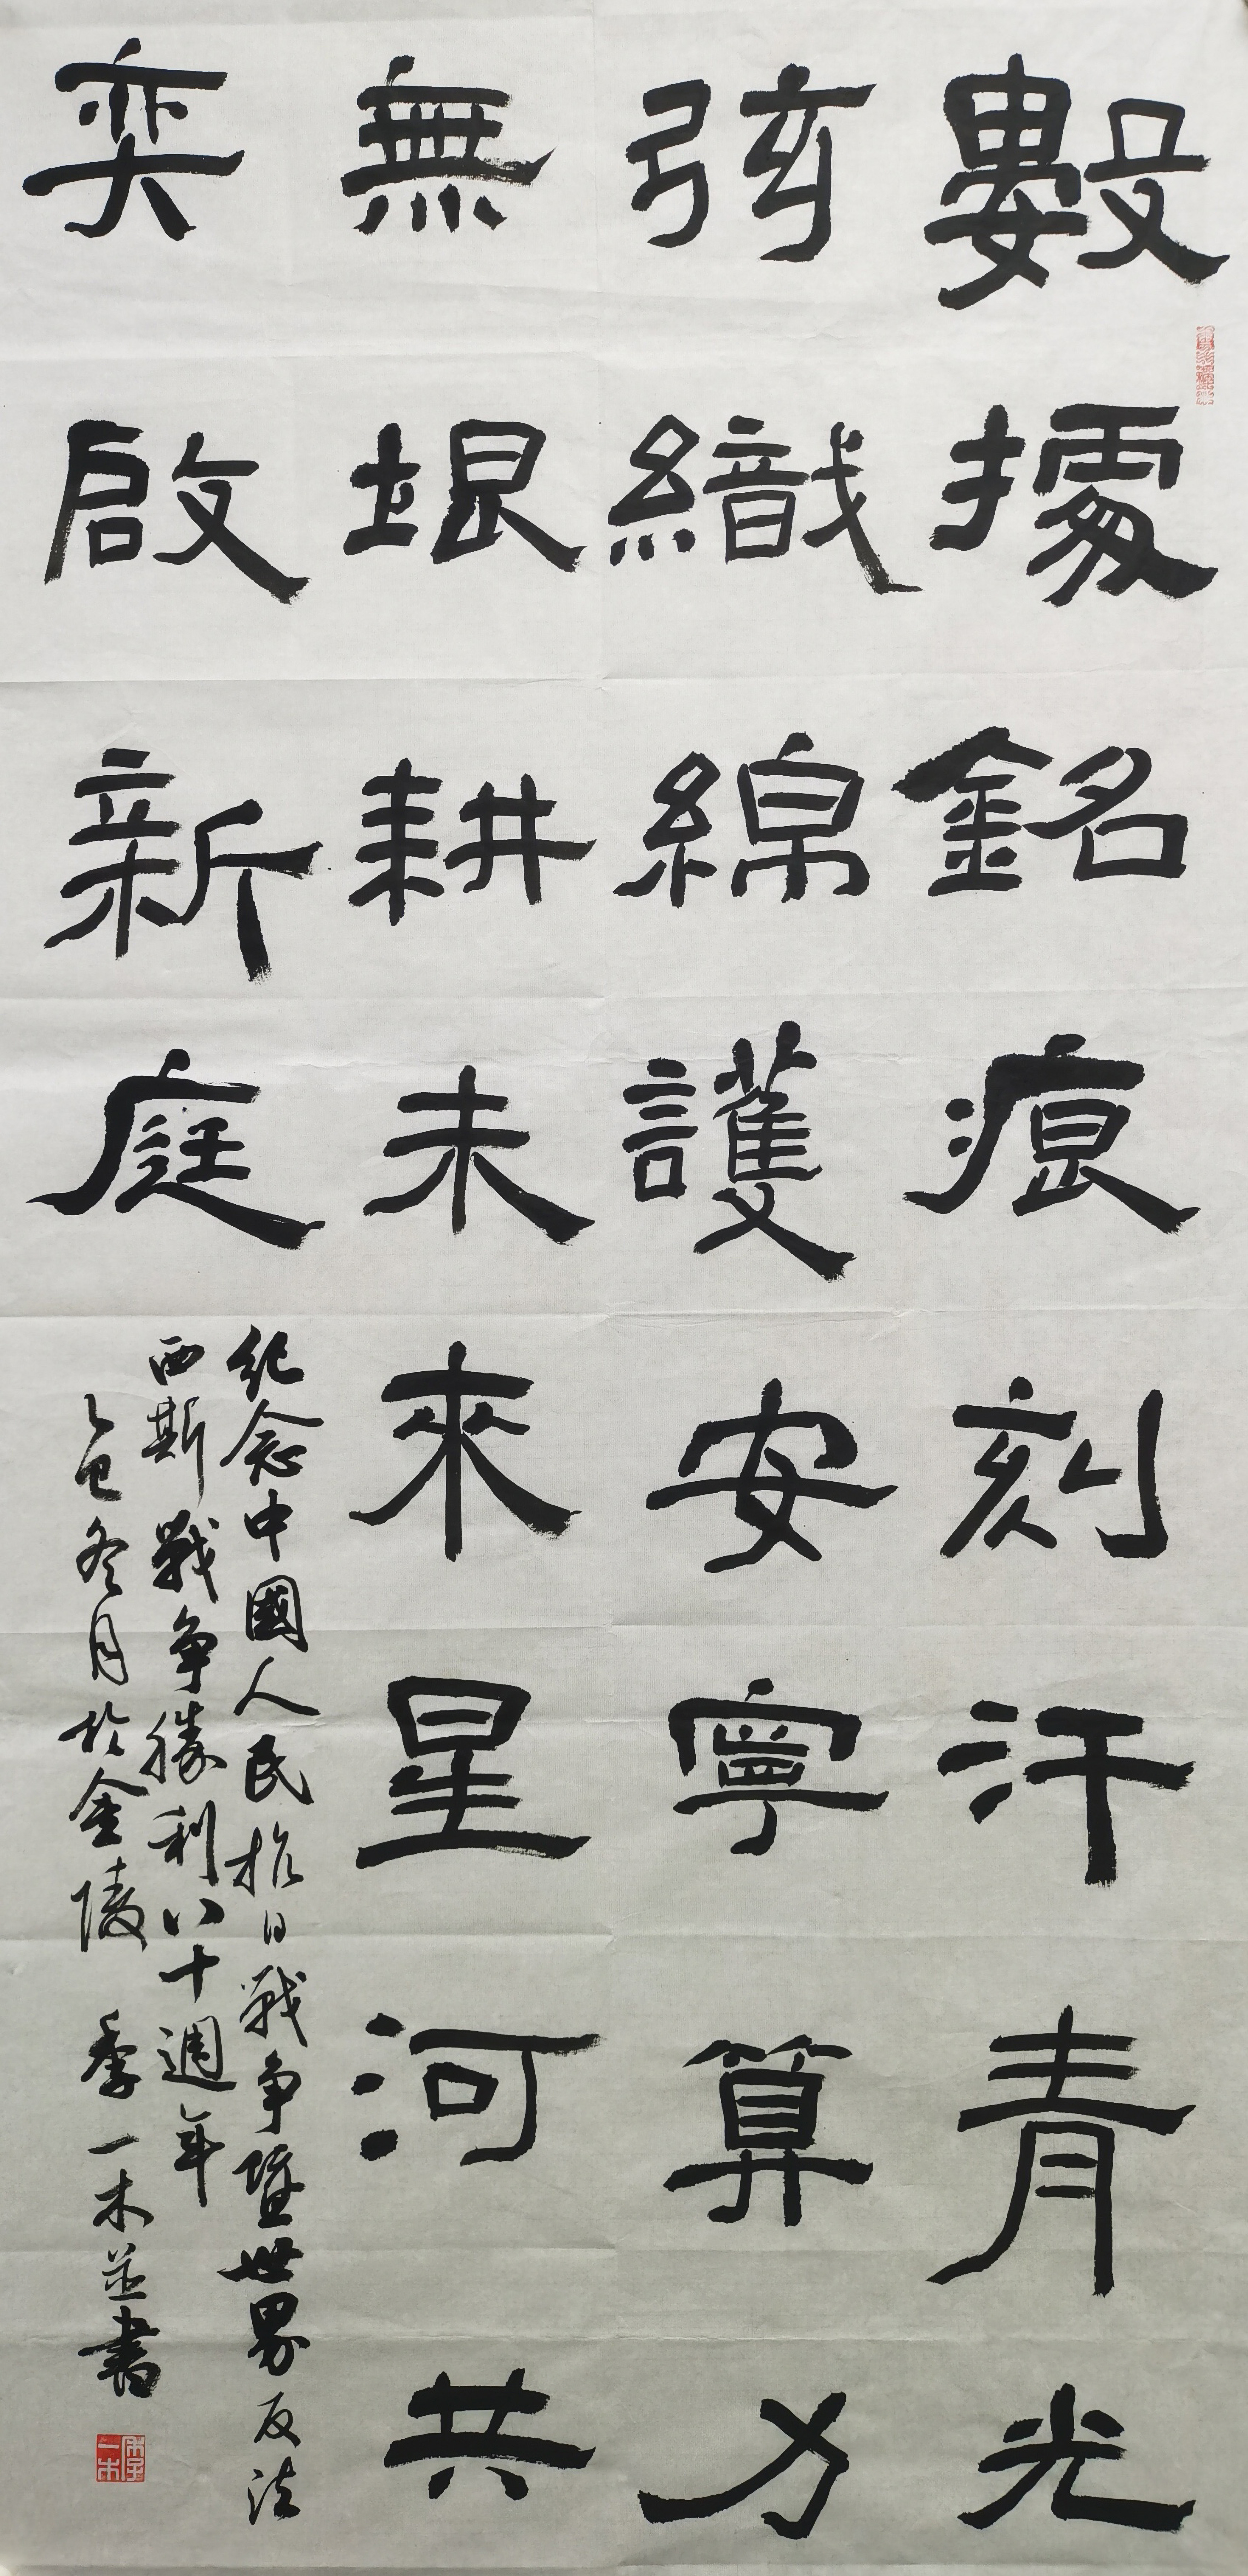 數據銘痕刻汗青光
弦織綿護安寧算力
無垠耕未來星河共
奕啟新庭
紀念中國人民抗日戰爭暨世界反法
西斯戰爭勝利八十週年
乙巳冬月於金陵 季一木並書
季一木